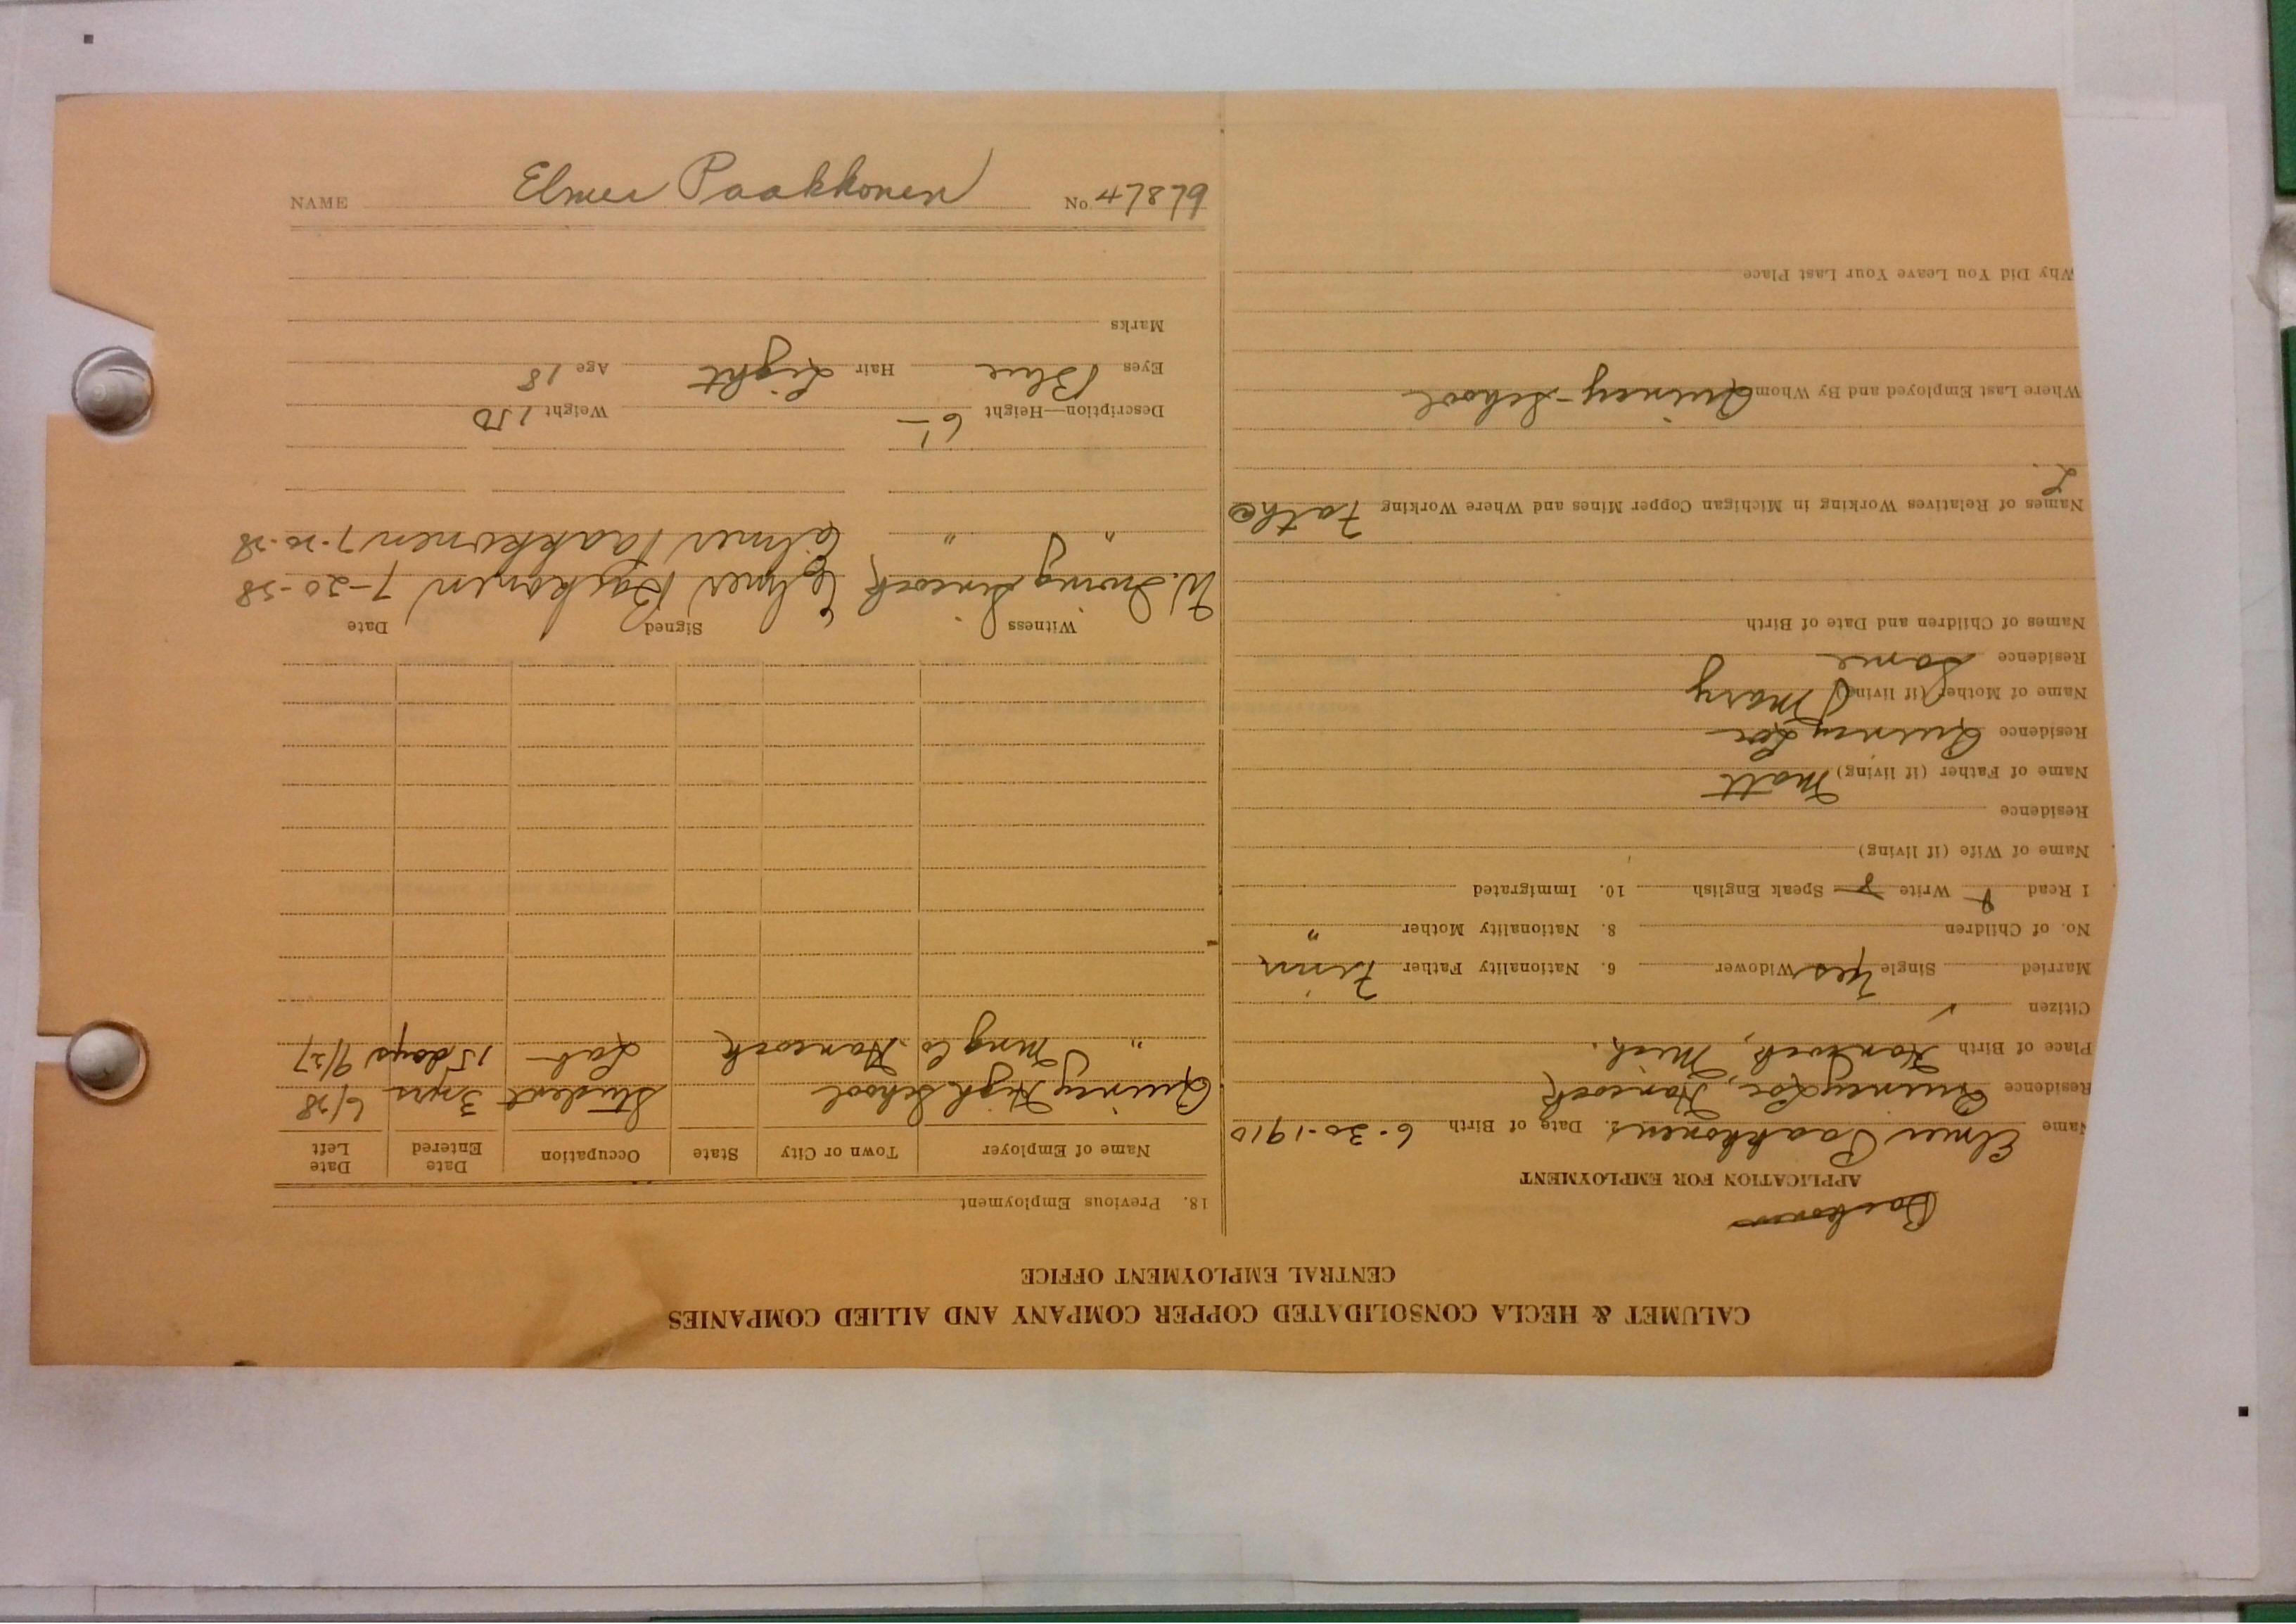 CALUMET & HECLA CONSOLIDATED COPPER COMPANY AND ALLIED COMPANIES
CENTRAL EMPLOYMENT OFFICE
APPLICATION FOR EMPLOYMENT
Name Elmer Paakkonen Date of Birth 6-30-1910
Residence Quincy Loc, Hancock
Place of Birth Hancock, Mich.
Citizen ✓
Married Single Yes Widower 6. Nationality Father Finn
No. of Children 8. Nationality Mother "
I Read Write Speak English 10. Immigrated
Name of Wife (if living)
Residence
Name of Father (if living) Matt
Residence Quincy Loc
Name of Mother (if living) Mary
Residence Same
Names of Children and Date of Birth
Names of Relatives Working in Michigan Copper Mines and Where Working Father
Where Last Employed and By Whom Quincy-School
Why Did You Leave Your Last Place
18. Previous Employment
Name of Employer Town or City State Occupation Date Entered Date Left
Quincy High School Student 3 yrs 6/28
" Mng Co Hancock Lab 15 days 9/27
Witness Signed Date
W. Irving Elmer 7-20-28
" " Elmer Paakkonen 7-20-28
Description—Height 6' Weight 150
Eyes Blue Hair Light Age 18
Marks
NAME Elmer Paakkonen No. 47879